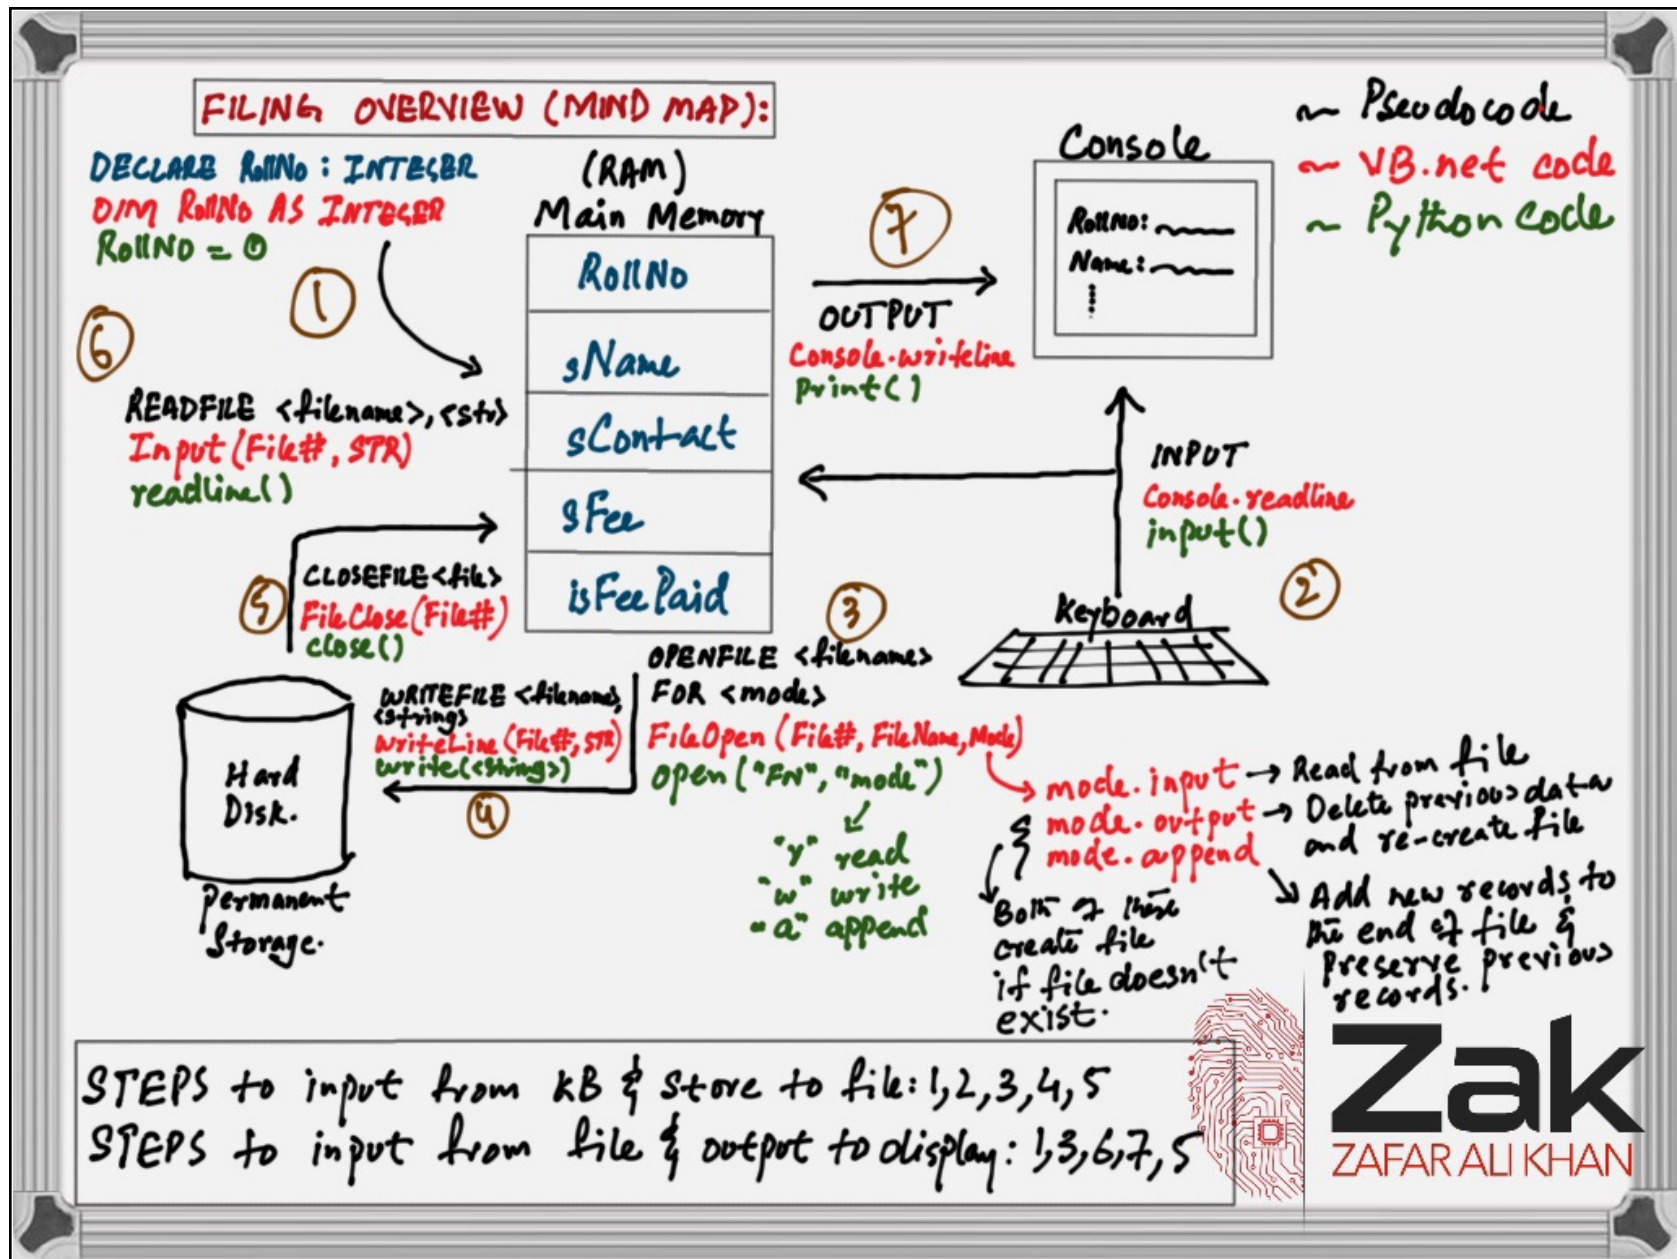 FILING OVERVIEW (MIND MAP):
~ Pseudocode
~ VB.net code
~ Python code
DECLARE RollNo : INTEGER
DIM RollNo AS INTEGER
RollNo = 0
1
(RAM)
Main Memory
RollNo
sName
sContact
sFee
isFeePaid
7
OUTPUT
Console.writeline
print()
Console
RollNo:
Name:
6
READFILE <filename>,<str>
Input(File#, STR)
readline()
INPUT
Console.readline
input()
2
Keyboard
5
CLOSEFILE<file>
FileClose(File#)
close()
3
OPENFILE <filename>
FOR <mode>
FileOpen (File#, FileName, Mode)
open("FN", "mode")
"r" read
"w" write
"a" append
WRITEFILE <filename>,
<string>
WriteLine (File#, STR)
write(<string>)
4
Hard
Disk.
Permanent
Storage.
mode.input → Read from file
mode.output → Delete previous data
and re-create file
mode.append
Add new records to
the end of file &
preserve previous
records.
Both of these
create file
if file doesn't
exist.
STEPS to input from KB & store to file: 1,2,3,4,5
STEPS to input from file & output to display: 1,3,6,7,5
Zak
ZAFAR ALI KHAN